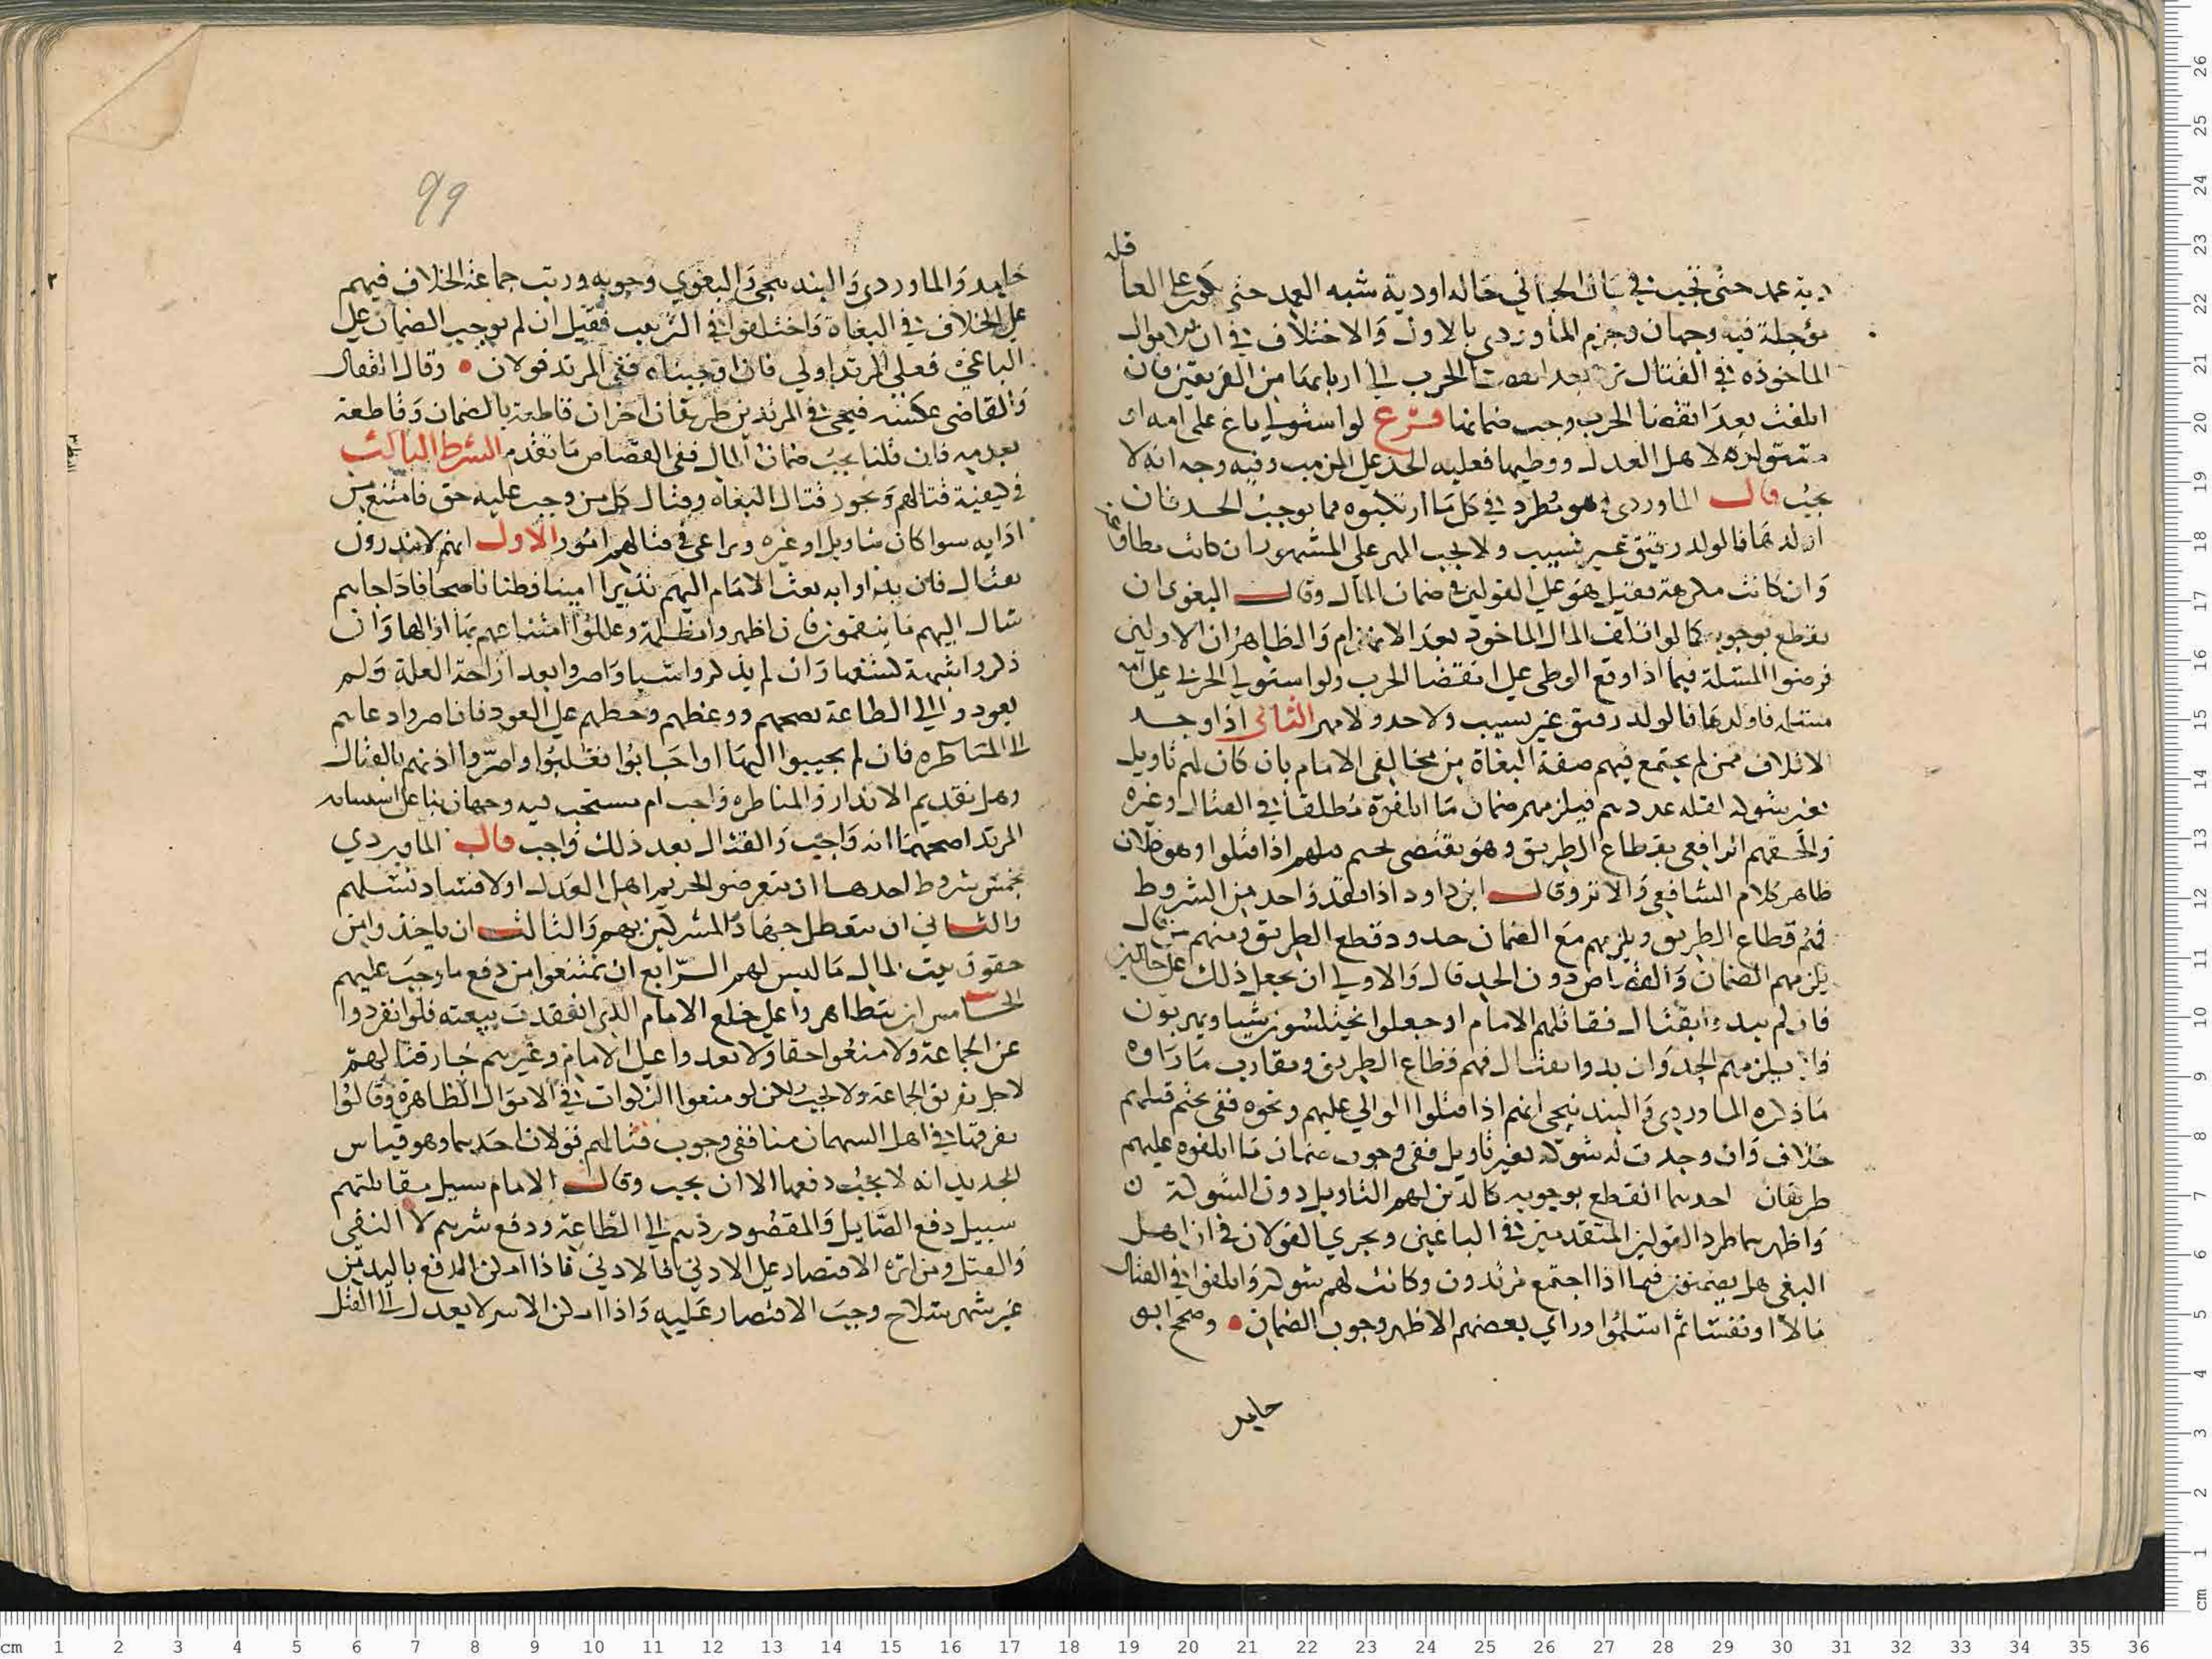 دية عمد حتى تجب في مال الجاني حالة او دية شبه العمد حتى تكون على العاقلة
مؤجلة فيه وجهان وجزم الماوردي بالاول والاختلاف في ان الاموال
الماخوذه في القتال ترد بعد انقضاء الحرب الى اربابها من الفريقين فان
اتلفت بعد انقضا الحرب وجب ضمانها فرع لو استولى باغ على امة او
مستولدة لاهل العدل ووطيها فعليه الحد على المذهب وفيه وجه انه لا
يجب قال الماوردي وهو مطرد في كل ما ارتكبوه مما يوجب الحد فان
اولدها فالولد رقيق غير نسيب ولا يجب المهر على المشهور ان كانت مطاوعة
وان كانت مكرهة فقيل هو على القولين في ضمان المال وقال البغوي ان
يقطع بوجوبه كما لو اتلف المال الماخوذ بعد الانهزام والظاهر ان الاولين
فرضوا المسئلة فيما اذا وقع الوطى على انقضا الحرب ولو استولى الحربي على امة
مسلم فاولدها فالولد رقيق غير نسيب ولا حد ولا مهر الثاني اذا وجد
الاتلاف ممن لم يجتمع فيهم صفة البغاة من مخالفي الامام بان كان لهم تاويل
بغير شوكة لقلة عددهم فيلزمهم ضمان ما اتلفوه مطلقا في القتال وغيره
والحقهم الرافعي بقطاع الطريق وهو يقتضي تحتم قتلهم اذا قتلوا وهو خلاف
ظاهر كلام الشافعي والاكثر وقال ابن داود اذا فقد واحد من الشروط
فهم قطاع الطريق ويلزمهم مع الضمان حدود قطع الطريق ومنهم من قال
يلزمهم الضمان والقصاص دون الحد قال والاولى ان يجعل ذلك على حالين
فان لم يبدوا بقتال فقاتلهم الامام او جعلوا يختلسون شيا ويهربون
فلا يلزمهم الحد وان بدوا بقتال فهم قطاع الطريق ويقارب ما رآه
ما ذكره الماوردي والبندنيجي انهم اذا قتلوا الوالي عليهم ونحوه ففي تحتم قتلهم
خلاف وان وجدت له شوكة بغير تاويل ففي وجوب ضمان ما اتلفوه عليهم
طريقان احدهما القطع بوجوبه كالذين لهم التاويل دون الشوكة
واظهرهما طرد القولين المتقدمين في الباغين ويجري القولان في ان اهل
البغي هل يضمنون فيما اذا اجتمع مرتدون وكانت لهم شوكة واتلفوا في القتال
مالا او نفسا ثم اسلموا وراى بعضهم الاظهر وجوب الضمان • وصحح ابو
حامد
99
حامد والماوردي والبندنيجي والبغوي وجوبه ورتب جماعة الخلاف فيهم
على الخلاف في البغاة واختلفوا في الترتيب فقيل ان لم نوجب الضمان على
الباغي فعلى المرتد اولى فان اوجبناه ففي المرتد قولان • وقال القفال
والقاضي عكسه فيجي في المرتدين طريقان اخران قاطعة بالضمان وقاطعة
بعدمه فان قلنا يجب ضمان المال ففي القصاص ما تقدم الشرط الثالث
في كيفية قتالهم ويجوز قتال البغاه وقتال كل من وجب عليه حق فامتنع من
ادايه سوا كان بتاويل او غيره ويراعى في قتالهم امور الاول انهم لا يبدرون
بقتال فان بدا وابه بعث الامام اليهم نذيرا امينا فطنا ناصحا فاذا جاهم
سال اليهم ما ينقمون فان اظهروا مظلمة وعللوا امتناعهم بها ازالها وان
ذكروا شبهة كشفها وان لم يذكروا شيا واصروا بعد ازاحة العلة ولم
يعودوا الى الطاعة نصحهم ووعظهم وحظهم على العود فان اصروا دعاهم
الى المناظره فان لم يجيبوا اليها او اجابوا فغلبوا واصروا اذنهم بالقتال
وهل تقديم الانذار والمناظره واجب ام مستحب فيه وجهان بنا على استتابة
المرتد اصحهما انه واجب والقتال بعد ذلك واجب قال الماوردي
بخمس شروط احدها ان يتعرضوا لحريم اهل العدل او لافساد نسلهم
والثاني ان يتعطل جهاد المشركين بهم والثالث ان ياخذوا من
حقوق بيت المال ما ليس لهم الرابع ان يمتنعوا من دفع ما وجب عليهم
الخامس ان يتظاهروا على خلع الامام الذي انعقدت بيعته فلو انفردوا
عن الجماعة ولا منعوا حقا ولا تعدوا على الامام وغيرهم جاز قتالهم
لاجل تفريق الجماعة ولا يجب لكن لو منعوا الزكوات في الاموال الظاهرة وقالوا
نفرقها في اهل السهمان منا ففي وجوب قتالهم قولان احدهما وهو قياس
الجديد انه لا يجب دفعها الا ان يجب وقال الامام سبيل مقاتلتهم
سبيل دفع الصايل والمقصود ردهم الى الطاعة ودفع شرهم لا النفي
والقتل ومن اثره الاقتصار على الادنى فالادنى فاذا امكن الدفع باليد من
غير شهر سلاح وجب الاقتصار عليه واذا امكن الاسر لا يعدل الى القتل